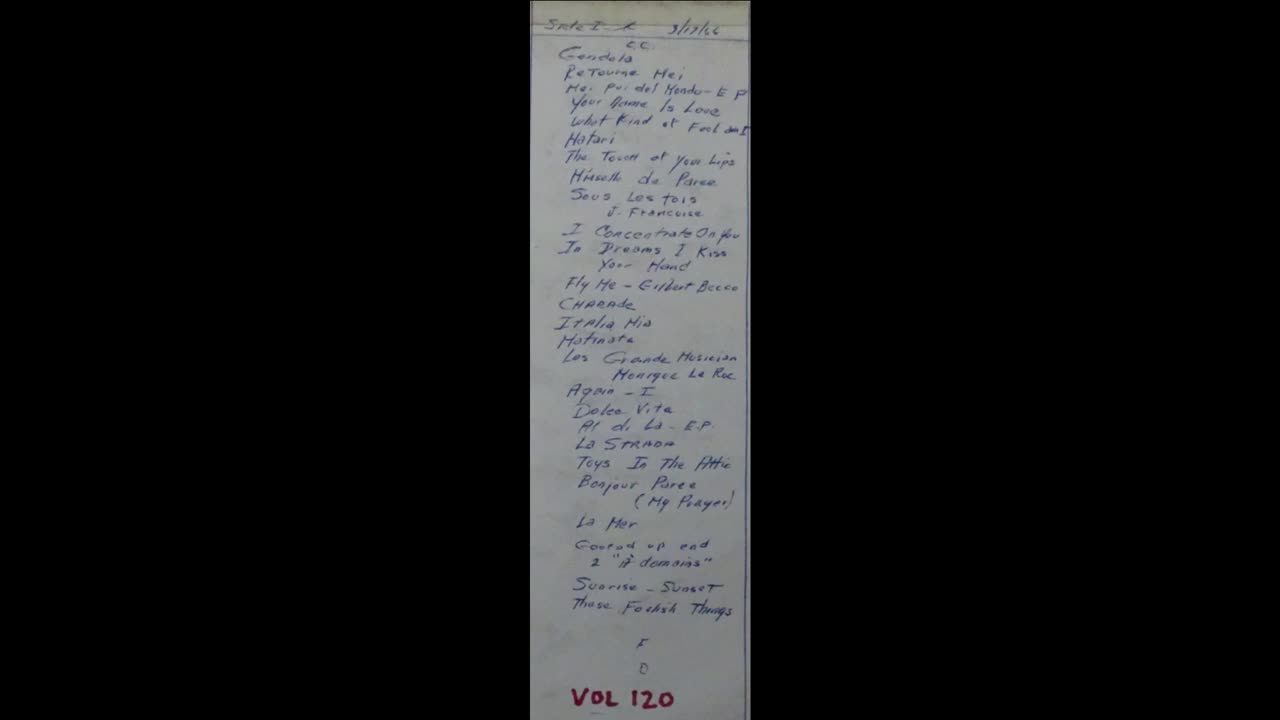 Side I - R 3/17/66
C.C.
Gondola
ReTourne Mei
Mei Pui del Mondo - E P
Your Name Is Love
What Kind of Fool am I
Hatari
The Touch of Your Lips
de Paree
Sous Les tois
J. Francoise
I Concentrate On You
In Dreams I Kiss
Your Hand
Fly Me - Gilbert Becco
CHARADE
ITAlia Mia
Matinata
Les Grande Musician
Monique Le Rue
Again - I
Dolce Vita
Al di La - E.P.
La STRADA
Toys In The Attic
Bonjour Paree
(My Prayer)
La Mer
Goofed up end
2 "A demains"
Sunrise - Sunset
These Foolish Things
F
O
VOL 120